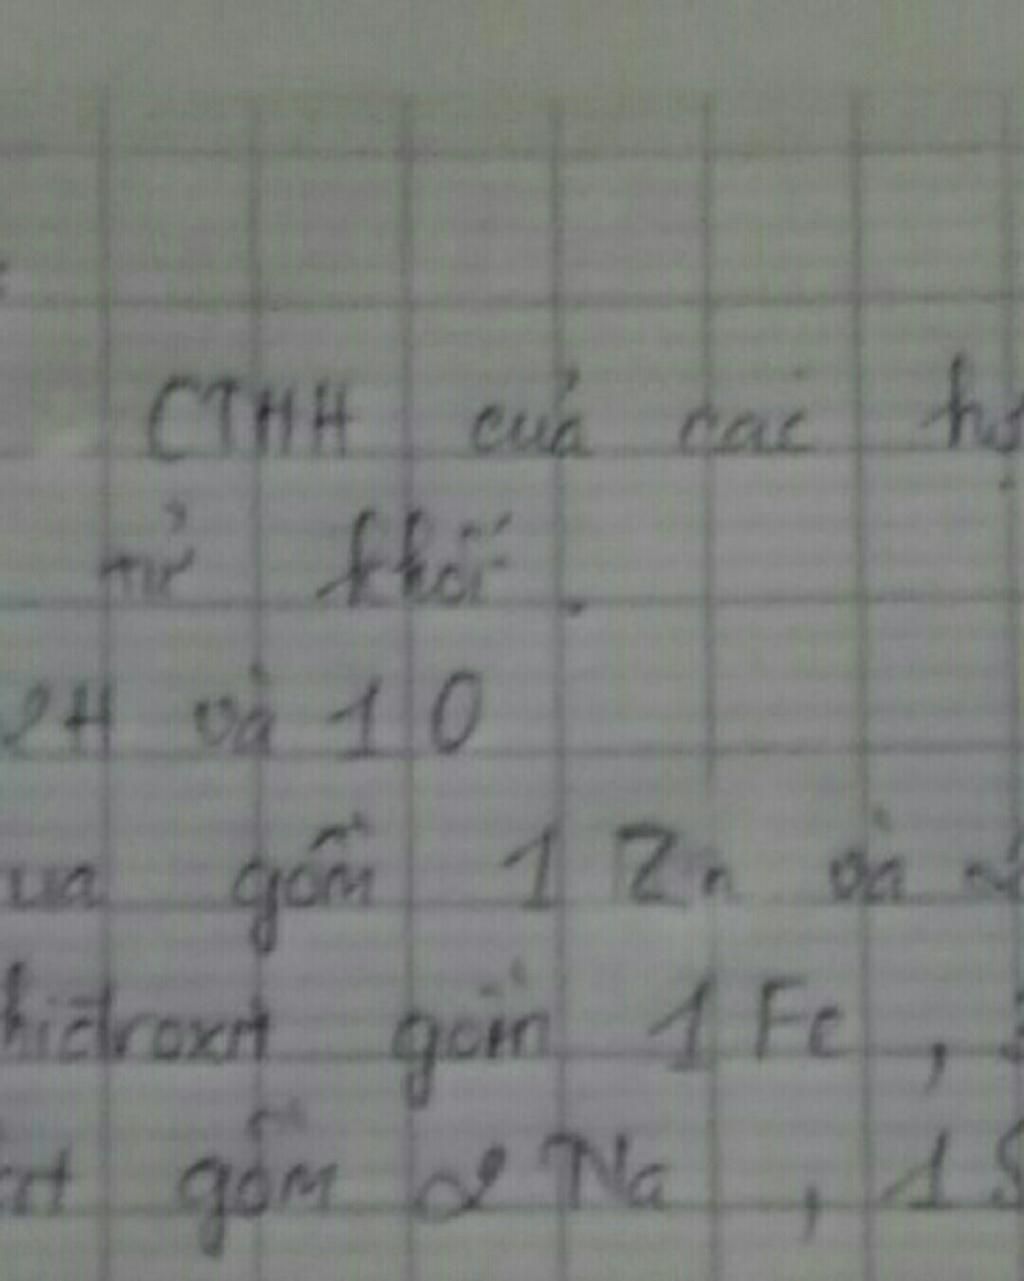 CTHH của các
tử khối.
2H và 1 O
gồm 1 Zn và
hiđroxit gồm 1 Fe ,
gồm 2 Na , 1 S